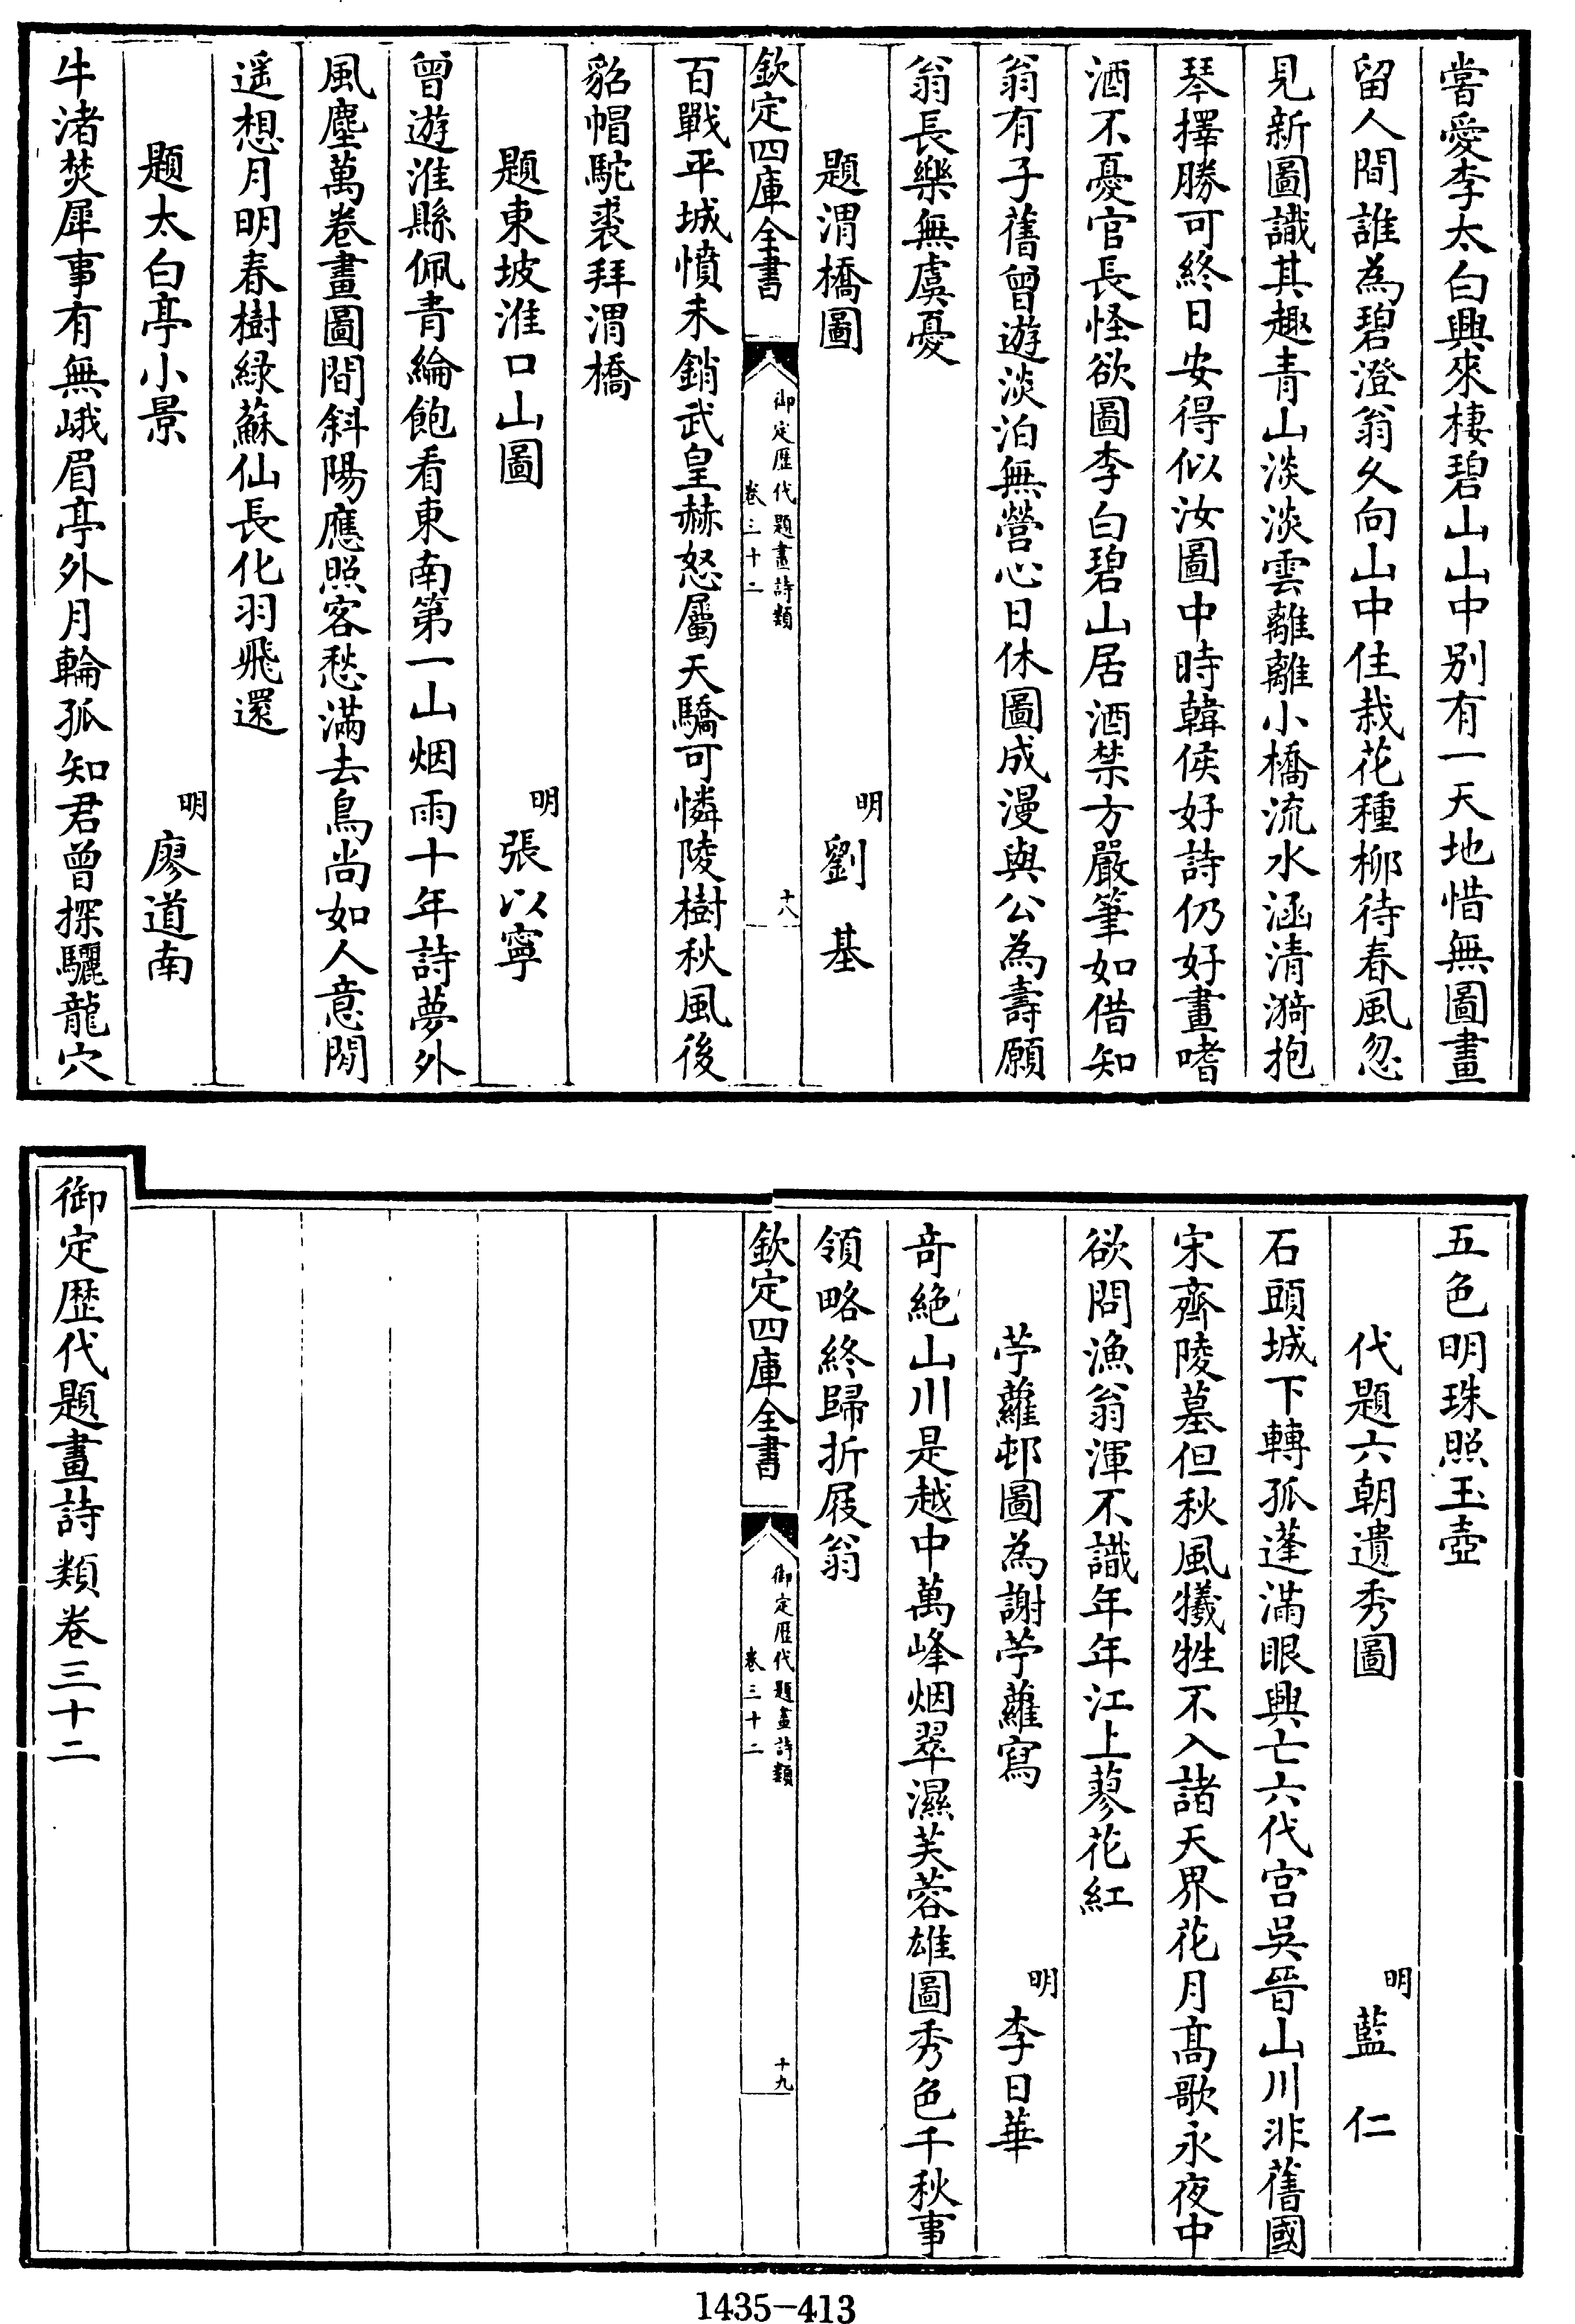 嘗愛李太白興來棲碧山山中別有一天地惜無圖畫
留人間誰為碧澄翁久向山中住栽花種柳待春風忽
見新圖識其趣青山淡淡雲離離小橋流水涵清漪抱
琴擇勝可終日安得似汝圖中時韓侯好詩仍好畫嗜
酒不憂官長怪欲圖李白碧山居酒禁方嚴筆如借知
翁有子舊曾遊淡泊無營心日休圖成漫與公為壽願
翁長樂無虞憂
題渭橋圖
明
劉基
欽定四庫全書
御定歴代題畫詩類
卷三十二
十八
百戰平城憤未銷武皇赫怒屬天驕可憐陵樹秋風後
貂帽駝裘拜渭橋
題東坡淮口山圖
明
張以寧
曾遊淮縣佩青綸飽看東南第一山烟雨十年詩夢外
風塵萬卷畫圖間斜陽應照客愁滿去鳥尚如人意閒
遥想月明春樹緑蘇仙長化羽飛還
題太白亭小景
明
廖道南
牛渚焚犀事有無峨眉亭外月輪孤知君曾探驪龍穴
五色明珠照玉壺
代題六朝遺秀圖
明
藍仁
石頭城下轉孤蓬滿眼興亡六代宫吳晉山川非舊國
宋齊陵墓但秋風犧牲不入諸天界花月髙歌永夜中
欲問漁翁渾不識年年江上蓼花紅
苧蘿邨圖為謝苧蘿寫
明
李日華
竒絶山川是越中萬峰烟翠濕芙蓉雄圖秀色千秋事
領略終歸折屐翁
欽定四庫全書
御定歴代題畫詩類
卷三十二
十九
御定歴代題畫詩類卷三十二
1435-413